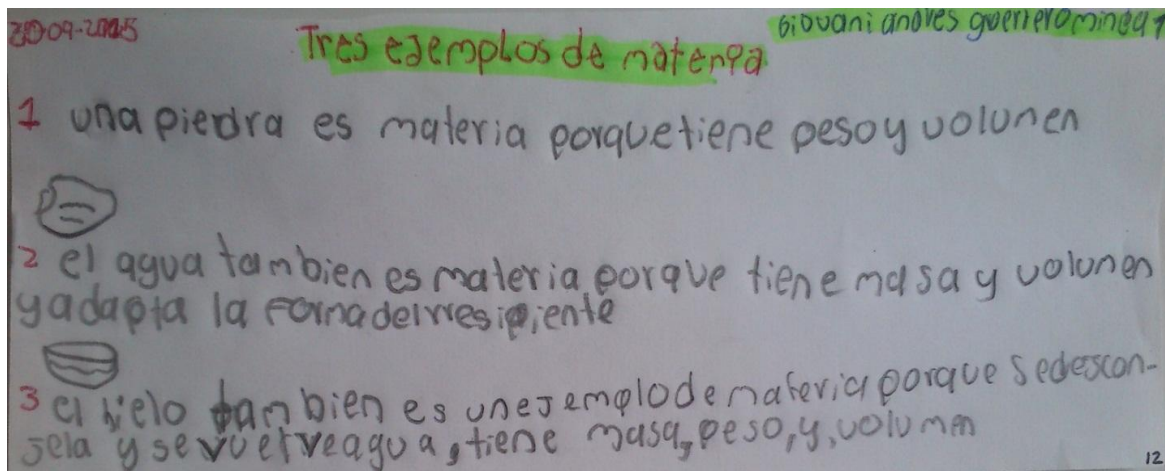 30-09-2015
Giovani andres guerrero mineq1
Tres ejemplos de materia
1 una piedra es materia porque tiene peso y volunen
2 el agua tambien es materia porque tiene masa y volunen
y adapta la forna del rresipiente
3 el hielo tambien es un ejemplo de materia porque se descon-
jela y se vuelve agua, tiene masa, peso, y, volumen
12